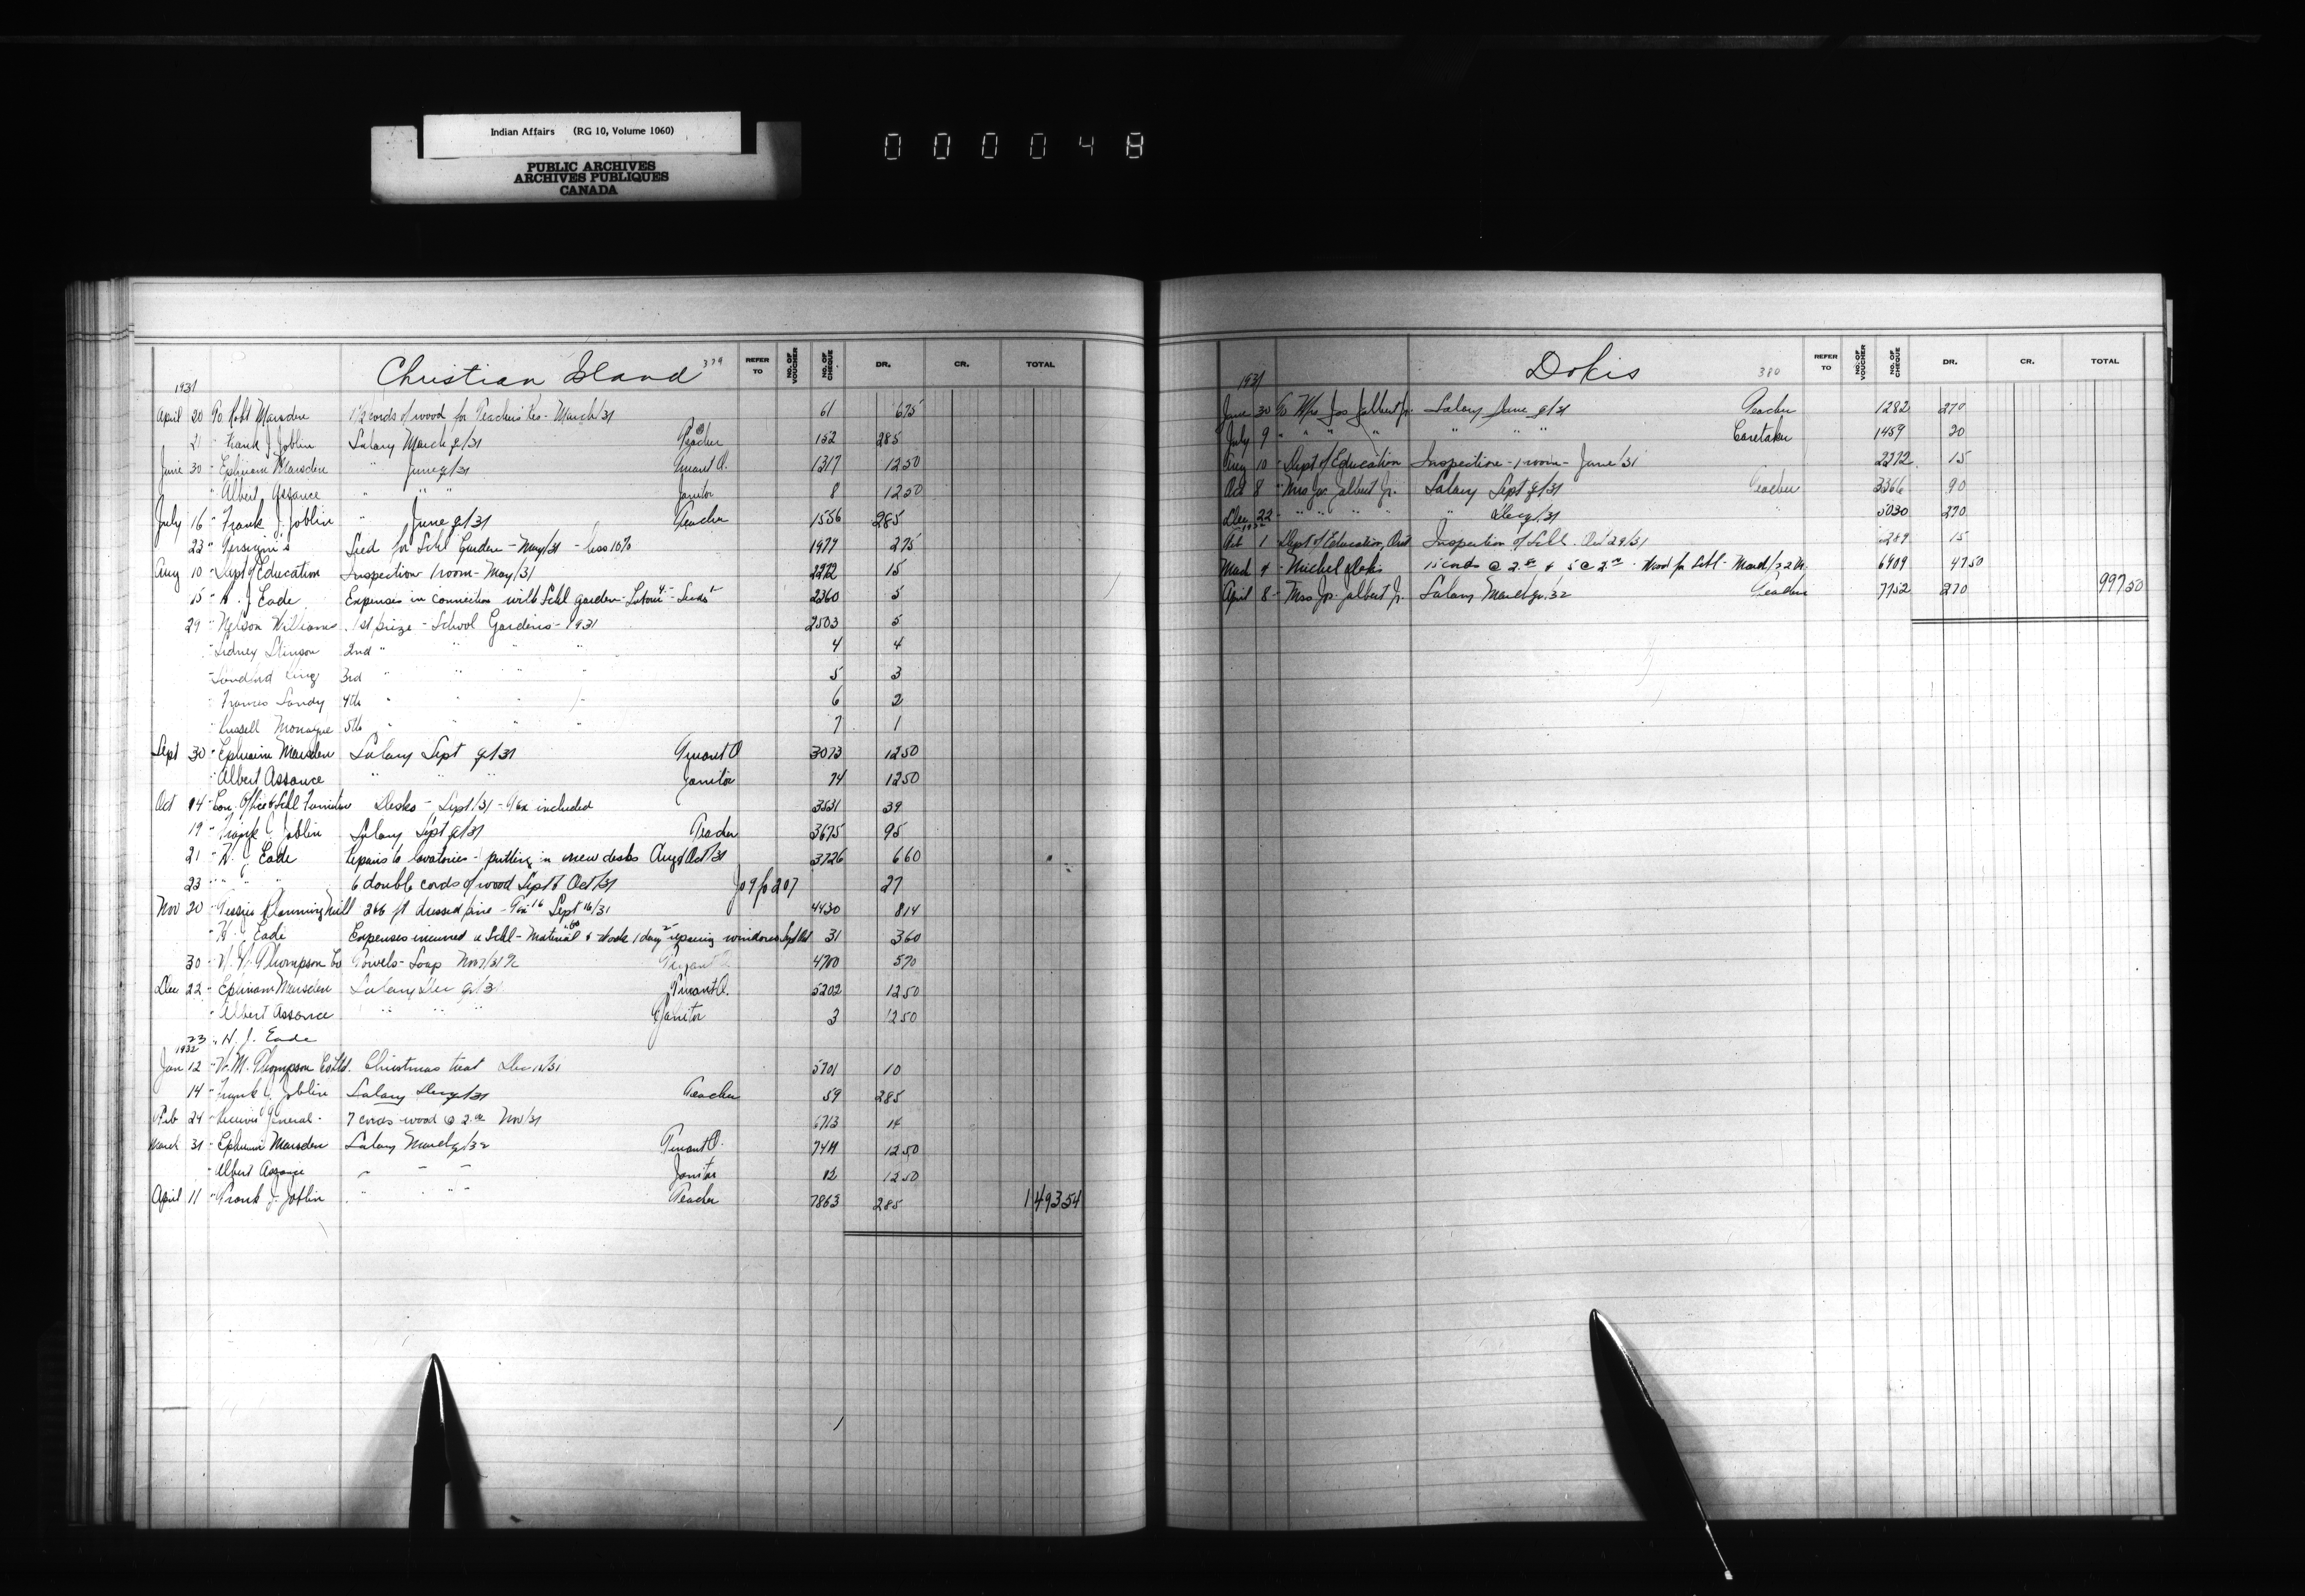 Indian Affairs (RG 10, Volume 1060)
PUBLIC ARCHIVES
ARCHIVES PUBLIQUES
CANADA
000048
Christian Island 379
REFER TO NO. OF VOUCHER NO. OF CHEQUE DR. CR. TOTAL
1931
April 20 To Robt Marsden 1½ cords of wood for Teacher's Res - March/31 61 6 75
21 " Frank J. Joblin Salary March q/31 Teacher 152 285
June 30 " Ephriam Marsden " June q/31 Truant O. 1317 12 50
" Albert Assance " " " Janitor 8 12 50
July 16 " Frank J. Joblin " June q/31 Teacher 1556 285
23 " Seed for Schl Garden - May/31 - less 10% 1977 2 75
Aug 10 " Dept of Education Inspection 1 room - May/31 2272 15
15 " H. J. Eade Expenses in connection with Schl garden - Labour 4 - Seeds 1 2360 5
29 " Nelson Williams 1st prize - School Gardens - 1931 2503 5
" Sidney Stinson 2nd " " " " 4 4
" Sandford King 3rd " " " " 5 3
" Frances Sandy 4th " " " " 6 2
" Russell Monague 5th " " " " 7 1
Sept 30 " Ephriam Marsden Salary Sept q/31 Truant O 3073 12 50
" Albert Assance " " " Janitor 74 12 50
Oct 14 " Can. Office & Schl Furniture Desks - Sept/31 - Tax included 3531 39
19 " Frank J. Joblin Salary Sept q/31 Teacher 3675 95
21 " H. J. Eade Repairs to lavatories - putting in new desks Aug & Oct/31 3726 6 60
23 " " " 6 double cords of wood Sept & Oct/31 Jo 9 fo 207 27
Nov 20 " Planning Mill 266 ft dressed pine - Tax 16 Sept 16/31 4430 8 14
" H. J. Eade Expenses incurred a Schl - Material & Work 1 day repairing windows Sept 31 3 60
30 " W. M. Thompson Co Towels - Soap Nov 7/31 4700 5 70
Dec 22 " Ephriam Marsden Salary Dec q/31 Truant O. 5202 12 50
" Albert Assance " " " Janitor 3 12 50
23 " H. J. Eade
1932
Jan 12 " W. M. Thompson Co Ltd. Christmas treat Dec 16/31 5701 10
14 " Frank J. Joblin Salary Dec q/31 Teacher 59 285
Feb 24 " Receiver General - 7 cords wood @ 2.00 Nov/31 6713 14
March 31 " Ephriam Marsden Salary March q/32 Truant O. 7411 12 50
" Albert Assance " " " Janitor 12 12 50
April 11 " Frank J. Joblin " " " Teacher 7863 285 1 493 54
Dokis 380
REFER TO NO. OF VOUCHER NO. OF CHEQUE DR. CR. TOTAL
1931
June 30 To Mrs Jos Jalbert Jr. Salary June q/31 Teacher 1282 270
July 9 " " " " " " " Caretaker 1459 20
Aug 10 " Dept of Education Inspection - 1 room - June/31 2272 15
Oct 8 " Mrs Jos Jalbert Jr. Salary Sept q/31 Teacher 3366 90
Dec 22 " " " " " Dec q/31 " 5030 270
1932
Feb 1 " Dept of Education, Ont Inspection of Schl. Oct 29/31 15
March 4 " Michel Dokis 15 cords @ & 5 @ - Wood for Schl - March/32 6909 47 50
April 8 " Mrs Jos. Jalbert Jr. Salary March qr. 32 Teacher 7752 270 997 50